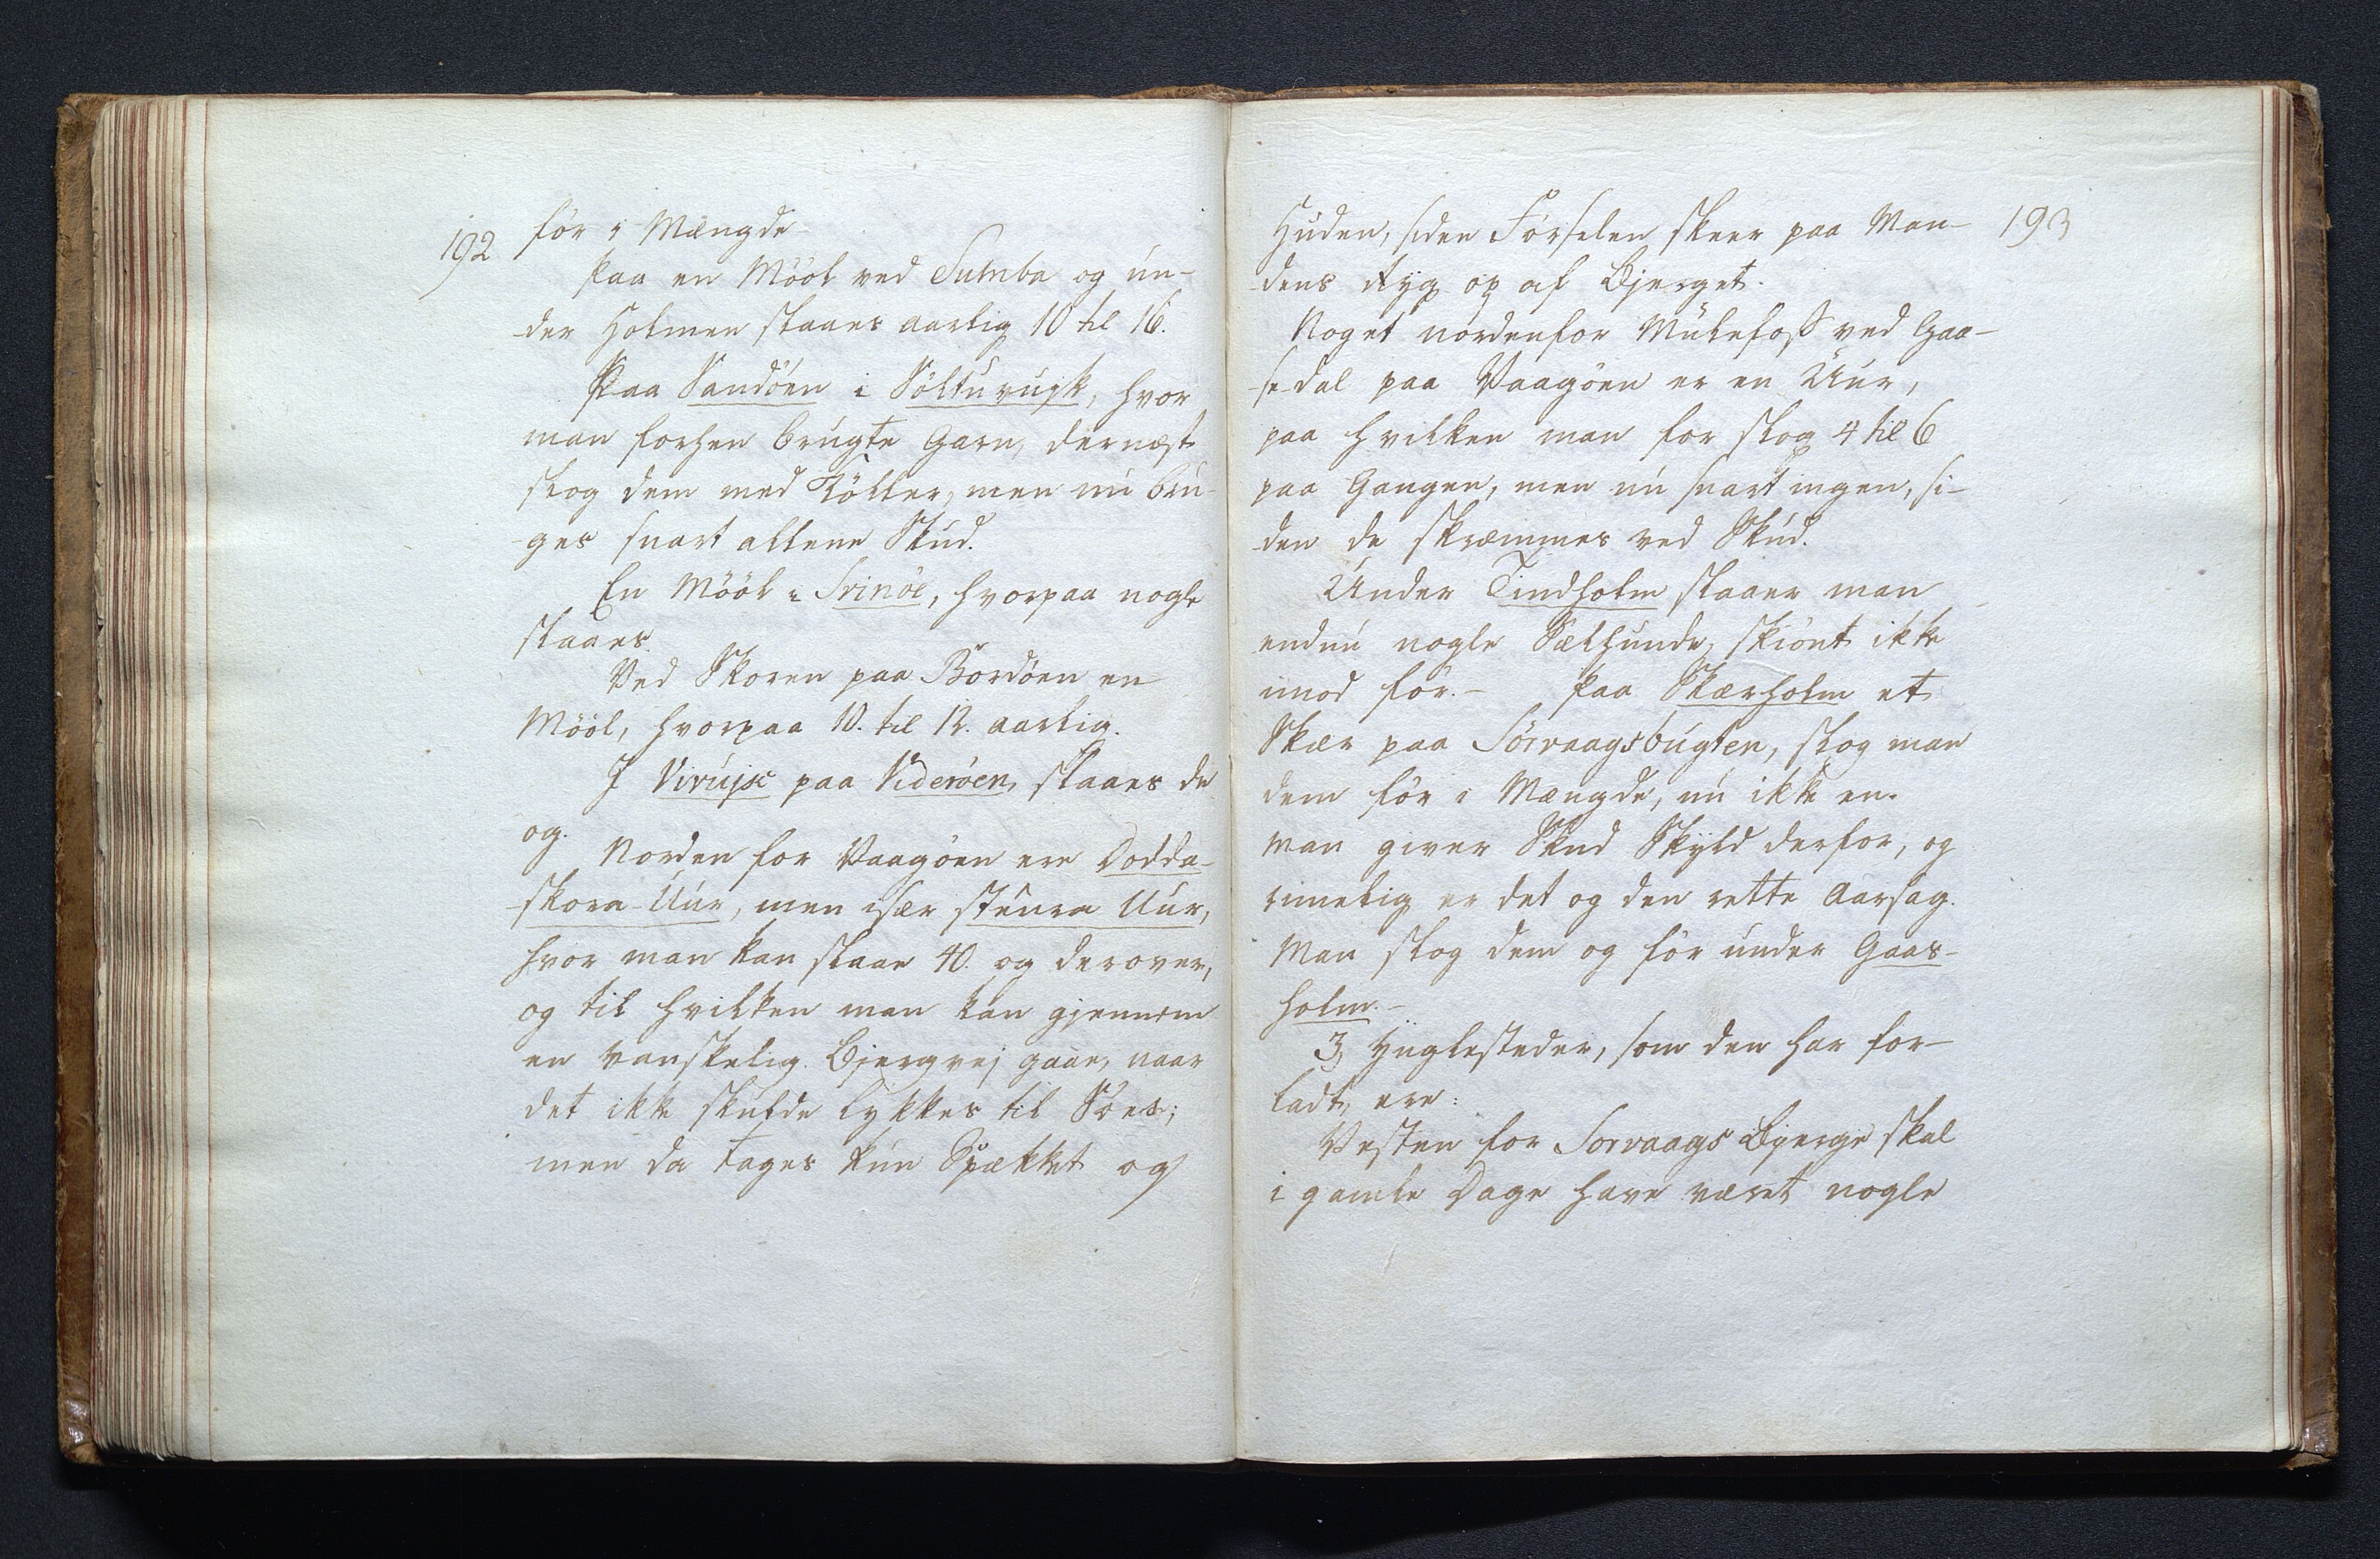 192
för i Mængde
Paa en Möól ved Sumba og ún-
der Holmen slaaes aarlig 10 til 16.
Paa Sandöen i Söltúvujk, hvor
man forhen brúgte Garn, dernæst
slog dem med Köller, men nú brú-
ges snart allene Skúd.
En Möól i Svinöe, hvorpaa nogle
slaaes.
Ved Skoren paa Bordöen en
Möól, hvorpaa 10. til 12. aarlig.
I Virújk paa Videröen, slaaes de
og.
Norden for Vaagöen ere Dodda-
skora-Úúr, men især stúura Uúr,
hvor man kan slaae 40. og derover,
og til hvilken man kan gjennem
en vanskelig Bjergvej gaae, naar
det ikke skulde lykkes til Söes;
men da tages kún Spækket og
193
Húden, siden Förselen skeer paa Man-
dens Ryg op af Bjerget.
Noget nordenfor Múlefoss ved Gaa-
sedal paa Vaagöen er en Úúr,
paa hvilken man för slog 4 til 6
paa Gangen, men nú snart ingen, si-
den de skræmmes ved Skúd.
Únder Tindholm slaaer man
endnú nogle Sælhúnde, skiönt ikke
imod för. - Paa Skærholm et
Skær paa Sörvaagsbúgten, slog man
dem för i Mængde, nú ikke en.
Man giver Skud Skyld derfor, og
rimelig er det og den rette Aarsag.
Man slog dem og för únder Gaas-
holm. -
3 Ynglesteder, som den har for-
ladt, ere:
Vesten for Sorvaags Bjerge skal
i gamle Dage have været nogle